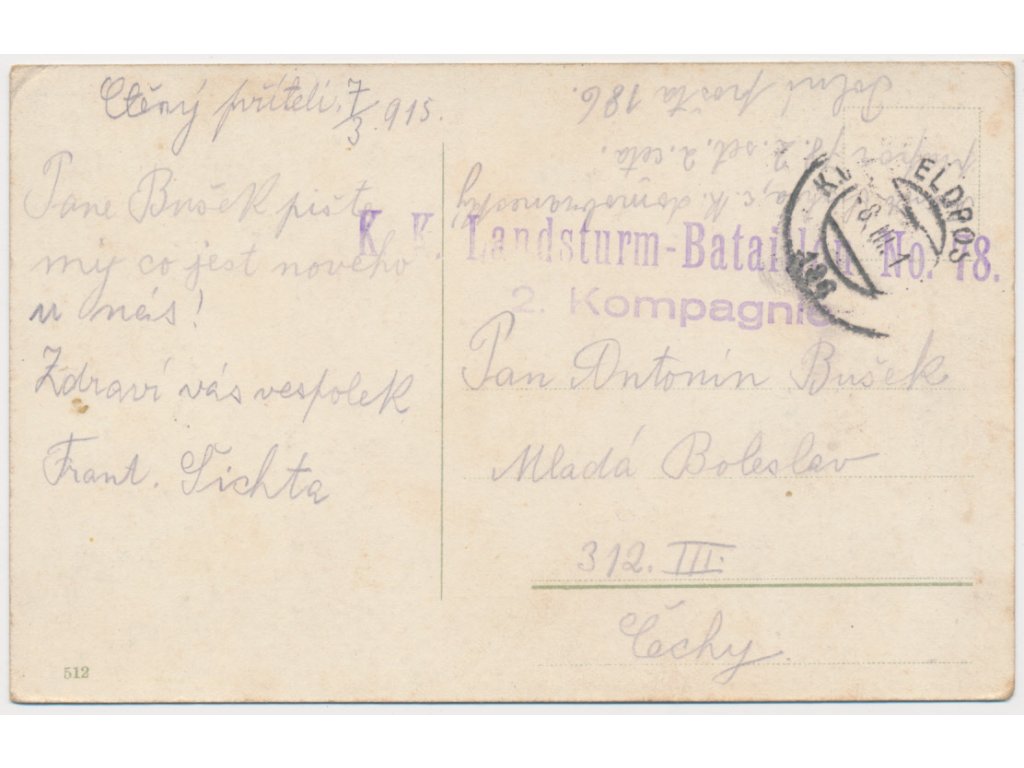 Ctěný příteli. 7/3 915.
Pane Bušek pište
my co jest nového
u nás!
Zdraví vás vespolek
Frant. Šichta
Polní pošta 186.
2. set. 2. ceta.
c. k. domobranecký
K. K. Landsturm-Bataillon No. 78.
2. Kompagnie
186
Pan Antonín Bušek
Mladá Boleslav
312. III.
Čechy.
512